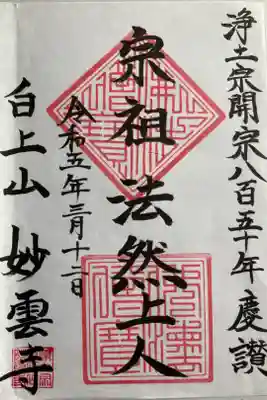 浄土宗開宗八百五十年慶讃
宗祖法然上人
令和五年三月十二日
白上山妙雲寺